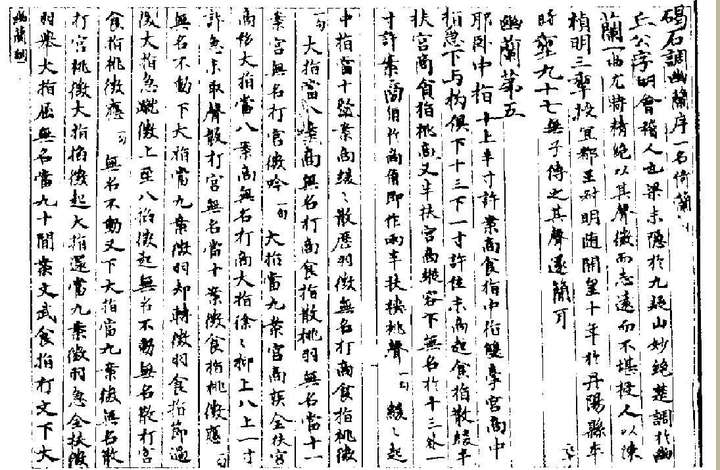 碣石調幽蘭序一名倚蘭
丘公字明會稽人也梁末隱於九疑山妙絕楚調於幽
蘭一曲尤特精絕以其聲微而志遠而不堪授人以陳
禎明三年授宜都王叔明隨開皇十年於丹陽縣卒
時年九十七無子傳之其聲遂簡耳
幽蘭第五
耶臥中指十上半寸許案商食指中指雙牽宮商中
指急下与拘俱下十三下一寸許住末商起食指散緩半
扶宮商食指挑商又半扶宮商縱容下無名於十三外一
寸許案商角於商角即作兩半扶挾挑聲一句 緩〻起
中指當十案商緩〻散歷羽徵無名打商食指挑徵
一句 大指當八案商無名打商食指散挑羽無名當十一
案宮無名打宮徵吟一句 大指當九案宮商疾全扶宮
商移大指當八案商無名打商大指徐〻抑上八上一寸
許急末取聲散打宮無名當十案徵食指挑徵應
無名不動下大指當九案徵羽却轉徵羽食指節過
徵大指急蹴徵上至八徵起無名不動無名散打宮
食指挑徵應一句 無名不動又下大指當九案徵無名散
打宮挑徵大指掐徵起大指還當九案徵羽急全扶徵
羽舉大指屈無名當九十間案文武食指打文下大